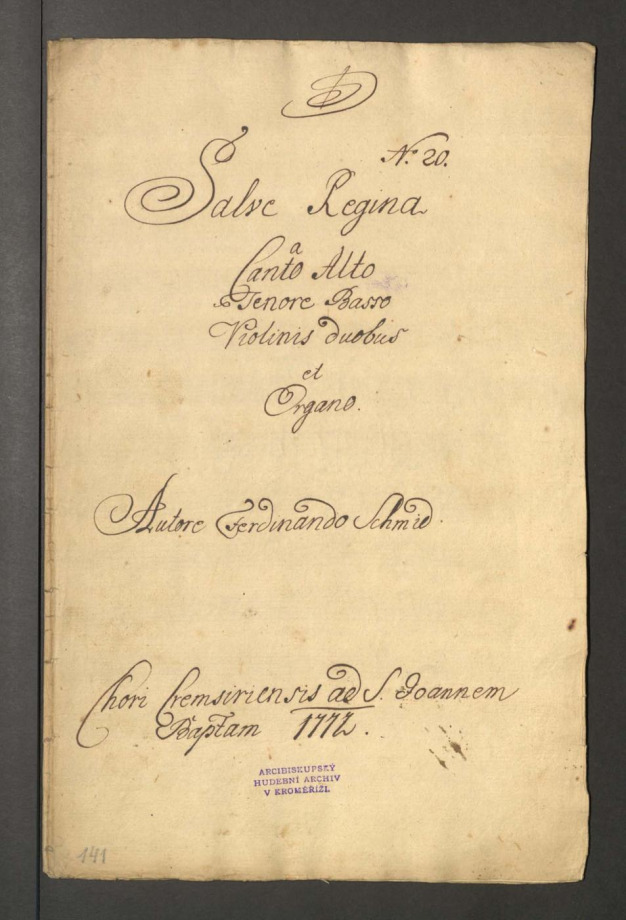 D
No. 20.
Salve Regina
a
Canto Alto
Tenore Basso
Violinis duobus
et
Organo.
Autore Ferdinando Schmid.
Chori Cremsiriensis ad S. Joannem
Baptam 1772.
ARCIBISKUPSKÝ
HUDEBNÍ ARCHIV
V KROMĚŘÍŽI.
141